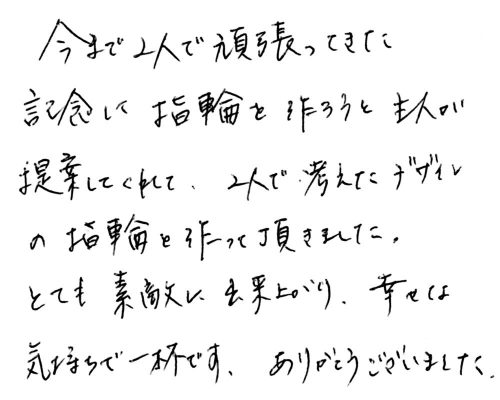 今まで2人で頑張ってきた
記念に指輪を作ろうと主人が
提案してくれて、2人で考えたデザイン
の指輪を作って頂きました。
とても素敵に出来上がり、幸せな
気持ちで一杯です、ありがとうございました。